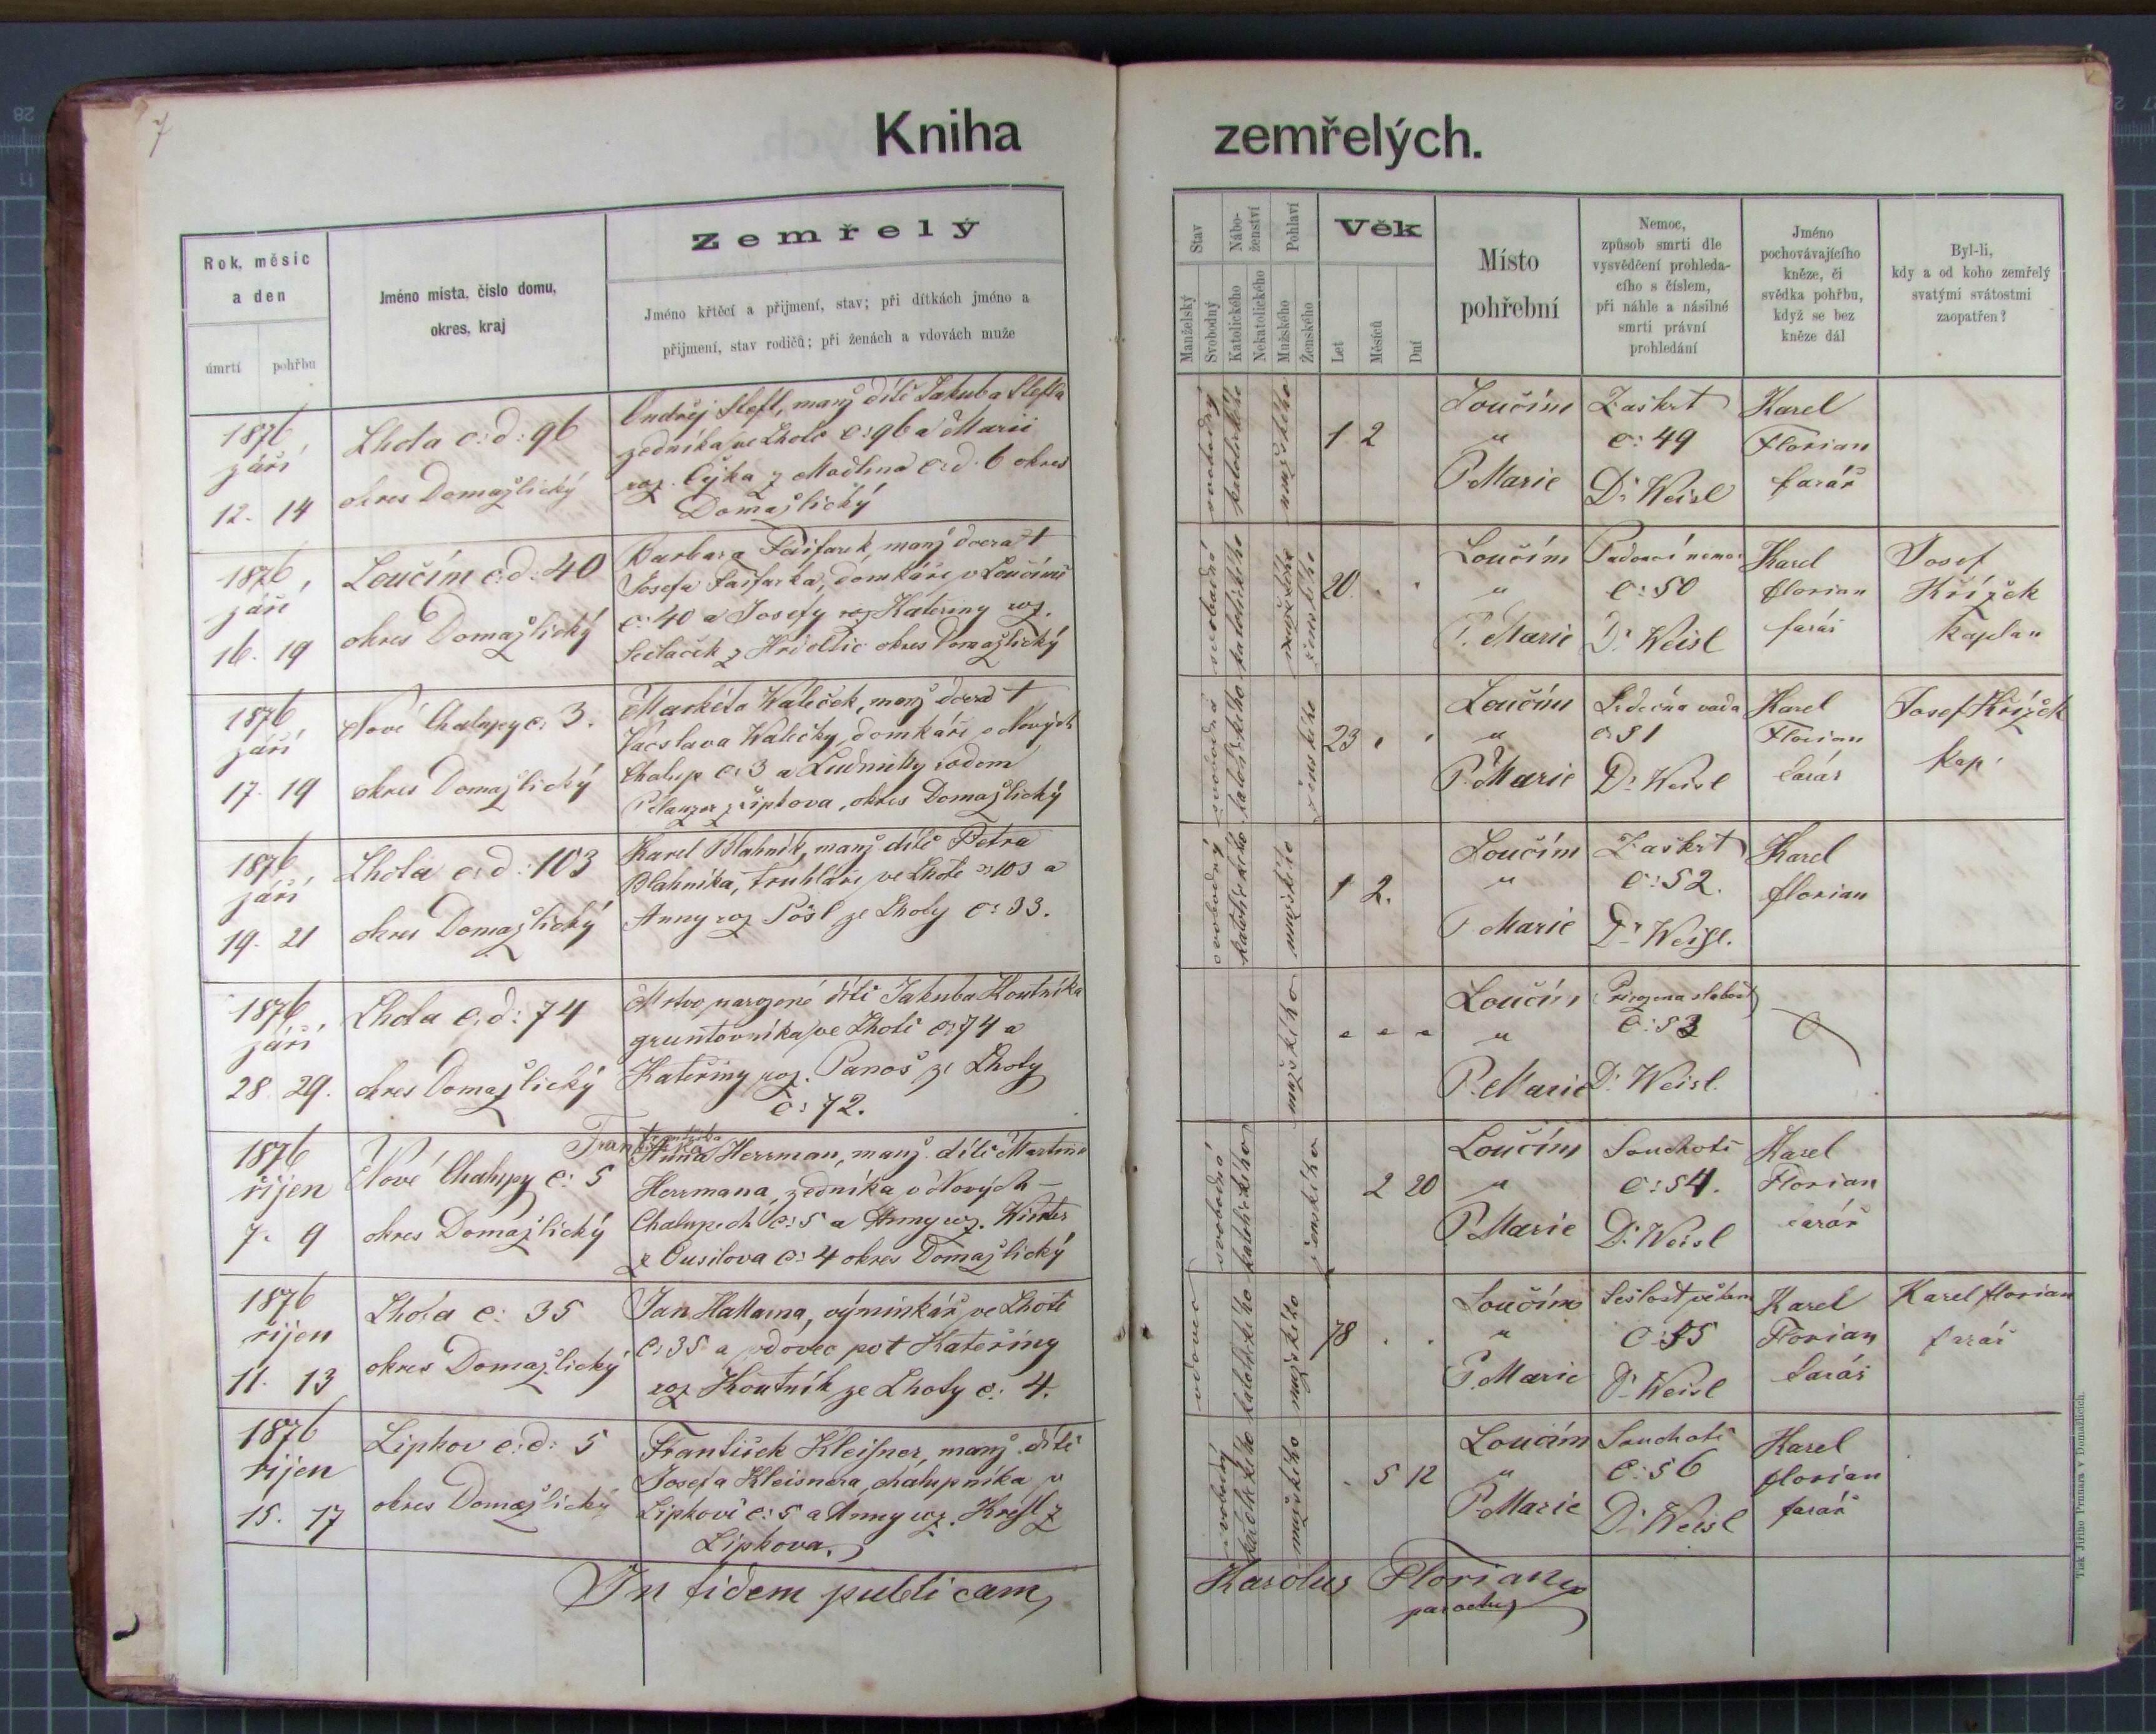 7
Kniha zemřelých.
Rok, měsíc
a den
úmrtí pohřbu
Jméno místa, číslo domu,
okres, kraj
Zemřelý
Jméno křtěcí a přijmení, stav; při dítkách jméno a
přijmení, stav rodičů; při ženách a vdovách muže
přijmení
Stav
Manželský
Svobodný
Nábo-
ženství
Katolického
Nekatolického
Pohlaví
Mužského
Ženského
Věk
Let
Měsíců
Dní
Místo
pohřební
Nemoc,
způsob smrti dle
vysvědčení prohleda-
cího s číslem,
při náhle a násilné
smrti právní
prohledání
Jméno
pochovávajícího
kněze, či
svědka pohřbu,
když se bez
kněze dál
Byl-li,
kdy a od koho zemřelý
svatými svátostmi
zaopatřen?
1876
září
12. 14
Lhota č: d: 96
okres Domažlický
Ondřej Štefl, manž dítě Jakuba Štefla
zedníka ve Lhotě č: 96 a Marii
roz. Čejka z Modlína č: d. 6 okres
Domažlický
svobodný
katolického
mužského
1 2
Loučim
"
P. Marie
Záškrt
č: 49
Dr Weisl
Karel
Florian
farář
1876
září
16. 19
Loučím č: d: 40
okres Domažlický
Barbara Faifarek, manž dcera †
Josefa Faifarka, domkáře v Loučimě
č: 40 a Josefy roz Kateriny roz.
Sedláček z okres Domažlický
svobodná
katolického
mužského
ženského
20 . .
Loučim
"
P. Marie
Padoucí nemoc
č: 50
Dr Weisl
Karel
florian
farář
Josef
Křížek
kaplan
1876
září
17. 19
Nové Chalupy č: 3.
okres Domažlický
Markéta Kaleček, manž dcera †
Václava Kalečky, domkáře z Nových
Chalup č: 3 a Ludmilky rodem
Pelanzer z Lipkova, okres Domažlický
svobodná
katolického
ženského
23 . .
Loučim
"
P. Marie
Srdečná vada
č: 51
Dr Weisl
Karel
Florian
farář
Josef Křížek
kap.
1876
září
19. 21
Lhota č: d: 103
okres Domažlický
Karel Blahník, manž dítě Petra
Blahníka, truhláře ve Lhotě č: 103 a
Anny roz Pösl ze Lhoty č: 33.
svobodný
katolického
mužského
1 2.
Loučim
"
P. Marie
Záškrt
č: 52.
Dr Weisl.
Karel
florian
1876
září
28. 29.
Lhota č: d: 74
okres Domažlický
Mrtvo narozené dítě Jakuba Koutníka
gruntovníka ve Lhotě č: 74 a
Kateřiny roz. Panoš ze Lhoty
č: 72.
mužského
Loučim
"
P. Marie
Přirozená slabost
č: 53
Dr Weisl.
1876
říjen
7. 9
Nové Chalupy č: 5
okres Domažlický
Františka
Františka
Anna Herrman, manž. dítě Martina
Herrmana, zedníka v Nových –
Chalupech č: 5 a Anny roz. Winter
z Ousilova č: 4 okres Domažlický
svobodná
katolického
ženského
2 20
Loučim
"
P. Marie
Souchotě
č: 54.
Dr Weisl
Karel
Florian
farář
1876
říjen
11. 13
Lhota č: 35
okres Domažlický
Jan Hallama, výminkář ve Lhotě
č: 35 a vdovec po † Kateřiny
roz Koutník ze Lhoty č: 4.
vdovec
katolického
mužského
78 . .
Loučim
"
P. Marie
Sešlost věkem
č: 55
Dr Weisl
Karel
Florian
farář
Karel florian
farář
1876
říjen
15. 17
Lipkov č: d: 5
okres Domažlický
František Kleisner, manž. dítě
Josefa Kleisnera, chalupníka v
Lipkově č: 5 a Anny roz. Kresl z
Lipkova.
svobodný
katolického
mužského
. 5 12
Loučim
"
P. Marie
Souchotě
č: 56
Dr Weisl
Karel
florian
farář
In fidem publicam,
Karolus Florian
parochus
Tisk Jiřího Prunara v Domažlicích.